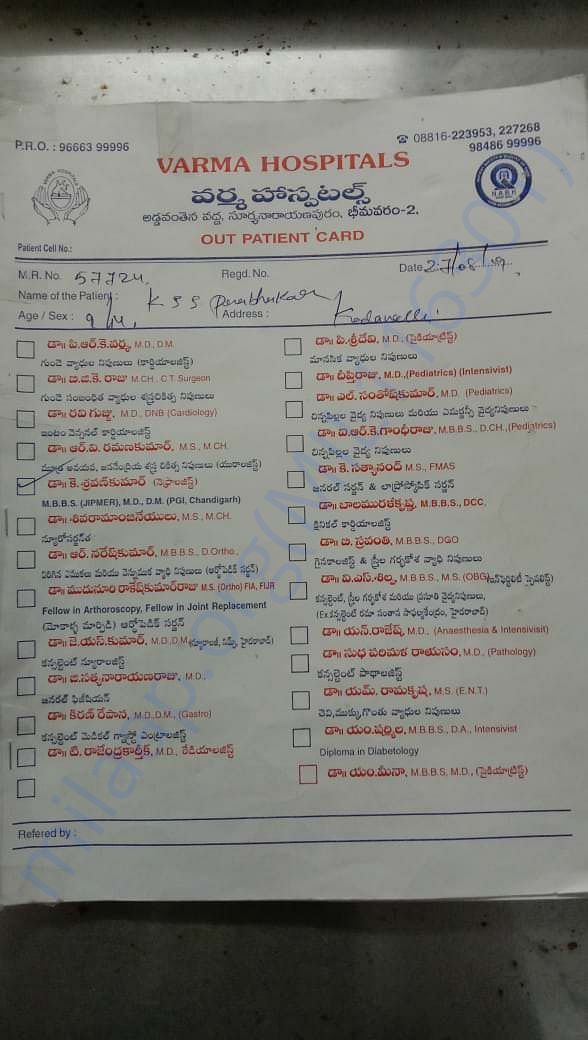 P.R.O. : 96663 99996
☎ 08816-223953, 227268
98486 99996
VARMA HOSPITALS
వర్మ హాస్పటల్స్
అడ్డవంతెన వద్ద, సూర్యనారాయణపురం, భీమవరం-2.
OUT PATIENT CARD
Patient Cell No.:
M.R. No. 57724
Regd. No.
Date 27/08/
Name of the Patient : K S S
Age / Sex : 9/M
Address :
డా॥ పి.ఆర్.కె.వర్మ, M.D., D.M.
గుండె వ్యాధుల నిపుణులు (కార్డియాలజిస్ట్)
డా॥ బి.బి.కె. రాజు M.CH., C.T. Surgeon
గుండె సంబంధిత వ్యాధుల శస్త్రచికిత్స నిపుణులు
డా॥ రవి గుజ్జు, M.D., DNB (Cardiology)
ఇంటర్వెన్షనల్ కార్డియాలజిస్ట్
డా॥ ఆర్.వి. రమణకుమార్, M.S., M.CH.
మూత్ర అవయవ, జననేంద్రియ శస్త్ర చికిత్స నిపుణులు (యురాలజిస్ట్)
డా॥ కె. శ్రవణ్‌కుమార్ (నెఫ్రాలజిస్ట్)
M.B.B.S. (JIPMER), M.D., D.M. (PGI, Chandigarh)
డా॥ శివరామాంజనేయులు, M.S., M.CH.
న్యూరోసర్జన్
డా॥ ఆర్. నరేష్‌కుమార్, M.B.B.S., D.Ortho.,
విరిగిన ఎముకలు మరియు వెన్నుముక వ్యాధి నిపుణులు (ఆర్థోపెడిక్ సర్జన్)
డా॥ ముదునూరి రాకేష్‌కుమార్‌రాజు M.S. (Ortho) FIA, FIJR
Fellow in Arthoroscopy, Fellow in Joint Replacement
(మోకాళ్ళ మార్పిడి) ఆర్థోపెడిక్ సర్జన్
డా॥ జె.యస్.కుమార్, M.D., D.M.
కన్సల్టెంట్ న్యూరాలజిస్ట్
డా॥ బి.సత్యనారాయణరాజు, M.D.,
జనరల్ ఫిజీషియన్
డా॥ కిరణ్ రేపాన, M.D.,D.M., (Gastro)
కన్సల్టెంట్ మెడికల్ గ్యాస్ట్రో ఎంట్రాలజిస్ట్
డా॥ టి. రాజేంద్రకార్తీక్, M.D., రేడియాలజిస్ట్
డా॥ పి.శ్రీదేవి, M.D., (సైకియాట్రిస్ట్)
మానసిక వ్యాధుల నిపుణులు
డా॥ దీప్తిరాజు, M.D.,(Pediatrics) (Intensivist)
డా॥ ఎల్. సంతోష్‌కుమార్, M.D. (Pediatrics)
చిన్నపిల్లల వైద్య నిపుణులు మరియు ఎమర్జన్సీ వైద్యనిపుణులు
డా॥ వి.ఆర్.కె.గాంధీరాజు, M.B.B.S., D.CH.,(Pediatrics)
చిన్నపిల్లల వైద్య నిపుణులు
డా॥ కె. సత్యానంద్ M.S., FMAS
జనరల్ సర్జన్ & లాప్రోస్కోపిక్ సర్జన్
డా॥ బాలమురళీకృష్ణ, M.B.B.S., DCC,
క్లినికల్ కార్డియాలజిస్ట్
డా॥ బి. స్రవంతి, M.B.B.S., DGO
గైనకాలజిస్ట్ & స్త్రీల గర్భకోశ వ్యాధి నిపుణులు
డా॥ వి.ఎస్.శిల్ప, M.B.B.S., M.S. (OBG)
కన్సల్టెంట్, స్త్రీల గర్భకోశ మరియు ప్రసూతి వైద్యనిపుణులు,
(Ex.కన్సల్టెంట్ రమా సంతాన సాఫల్యకేంద్రం, హైదరాబాద్)
డా॥ యన్.రాజేష్, M.D., (Anaesthesia & Intensivisit)
డా॥ సుధ పరిమళ రాయసం, M.D., (Pathology)
కన్సల్టెంట్ పాథాలజిస్ట్
డా॥ యమ్. రామకృష్ణ, M.S. (E.N.T.)
చెవి,ముక్కు,గొంతు వ్యాధుల నిపుణులు
డా॥ యం.షర్మిల, M.B.B.S., D.A., Intensivist
Diploma in Diabetology
డా॥ యం.మీనా, M.B.B.S, M.D., (సైకియాట్రిస్ట్)
Refered by :